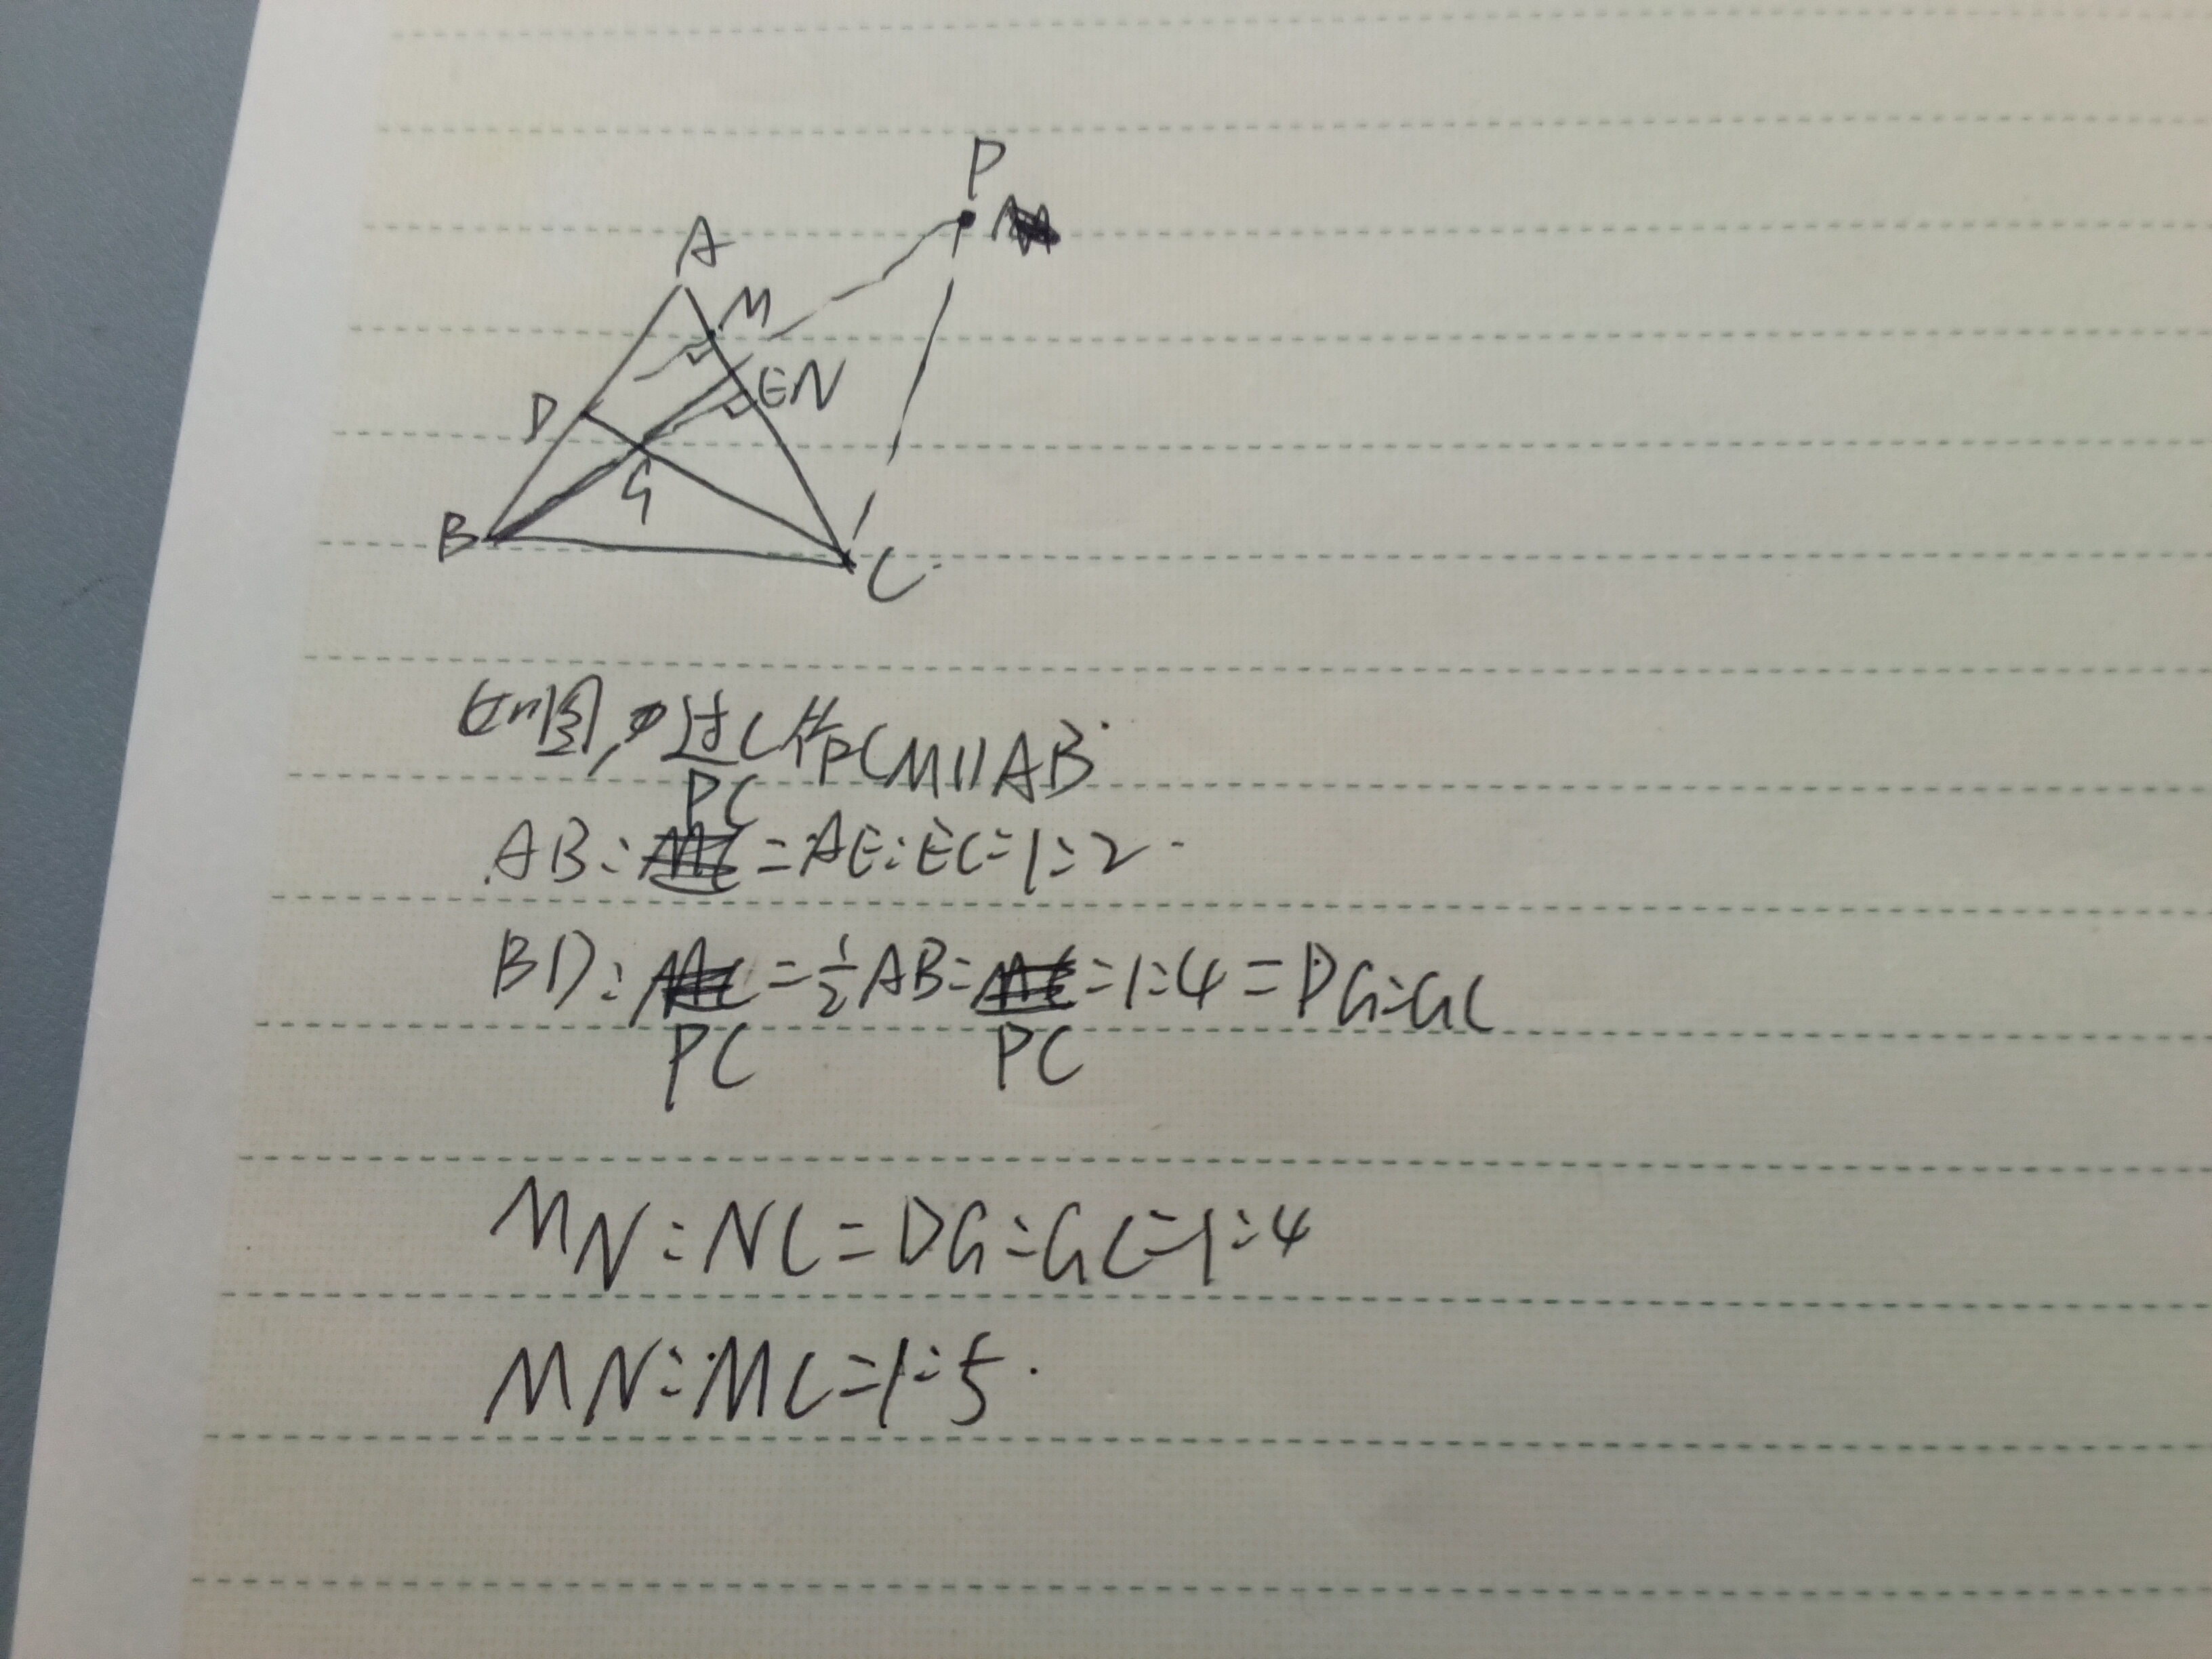 P
A
M
D
EN
G
B
C
如图,过C作CM//AB
PC
AB:=AE:EC=1:2
BD:=½AB:=1:4=DG:GC
PC PC
MN:NC=DG:GC=1:4
MN:MC=1:5.